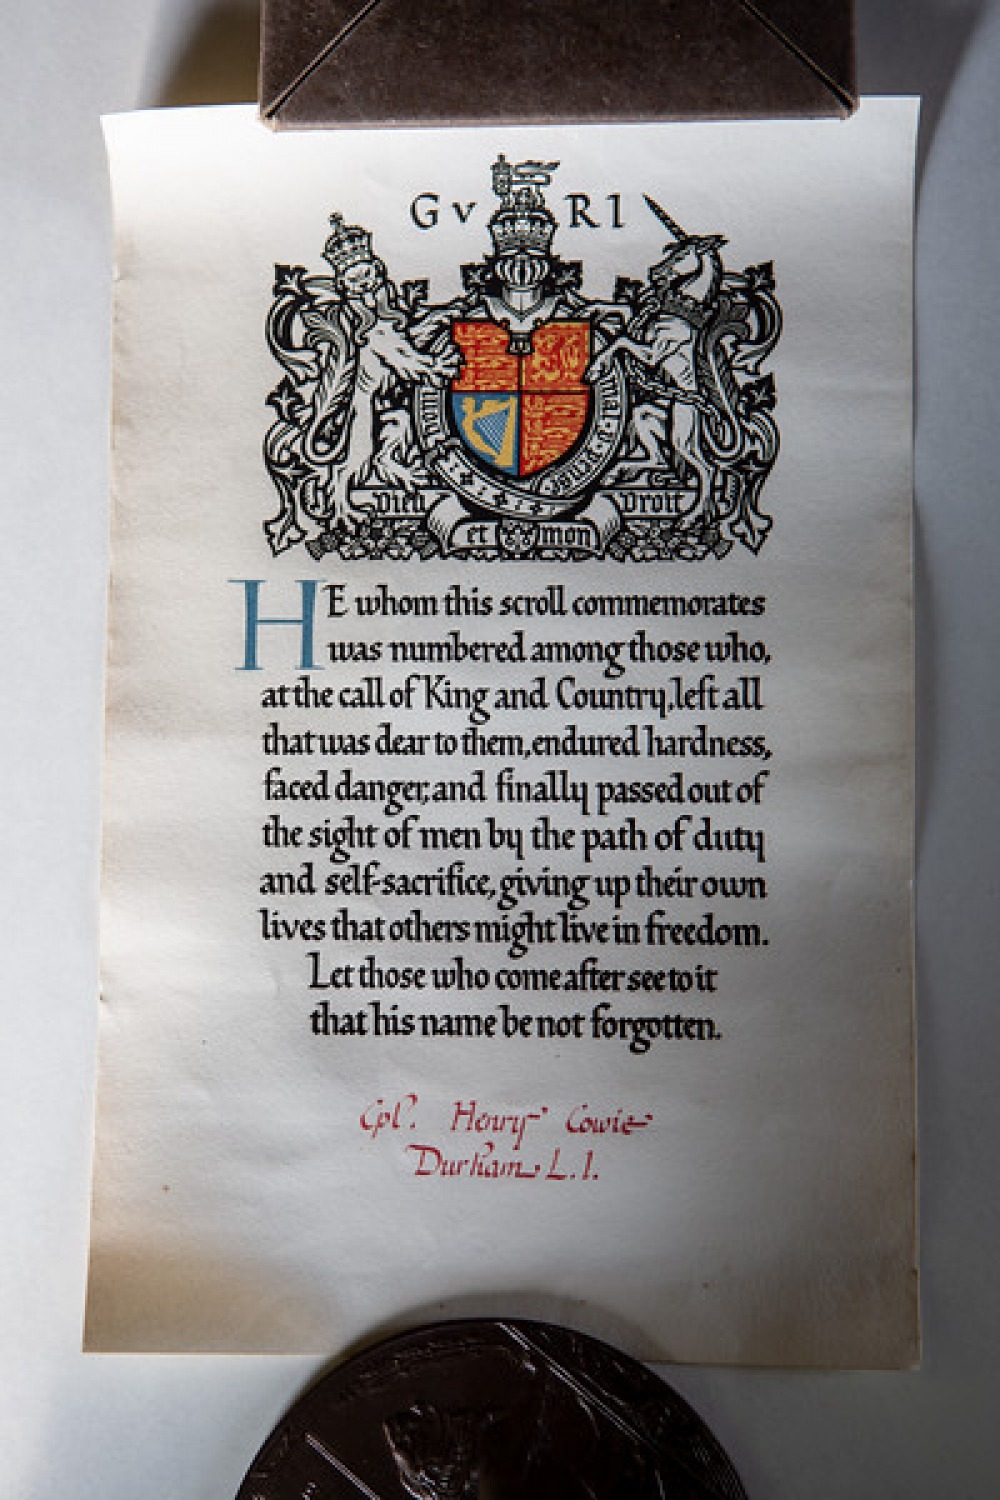 G V R I
honi soit qui mal y pense
Dieu et mon Droit
HE whom this scroll commemorates
was numbered among those who,
at the call of King and Country, left all
that was dear to them, endured hardness,
faced danger, and finally passed out of
the sight of men by the path of duty
and self-sacrifice, giving up their own
lives that others might live in freedom.
Let those who come after see to it
that his name be not forgotten.
Cpl. Henry Cowie
Durham L.I.